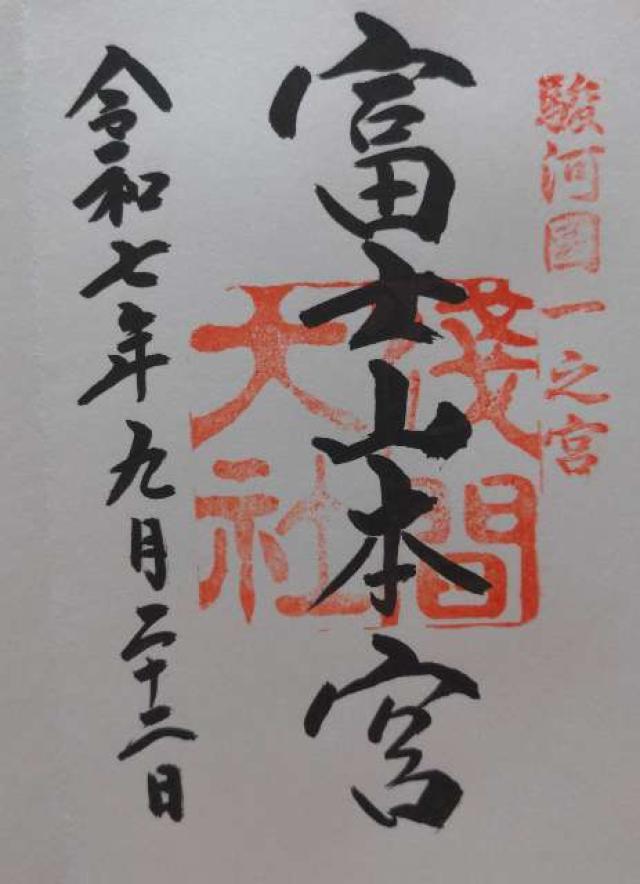 駿河國一之宮
富士山本宮
淺間大社
令和七年九月二十二日